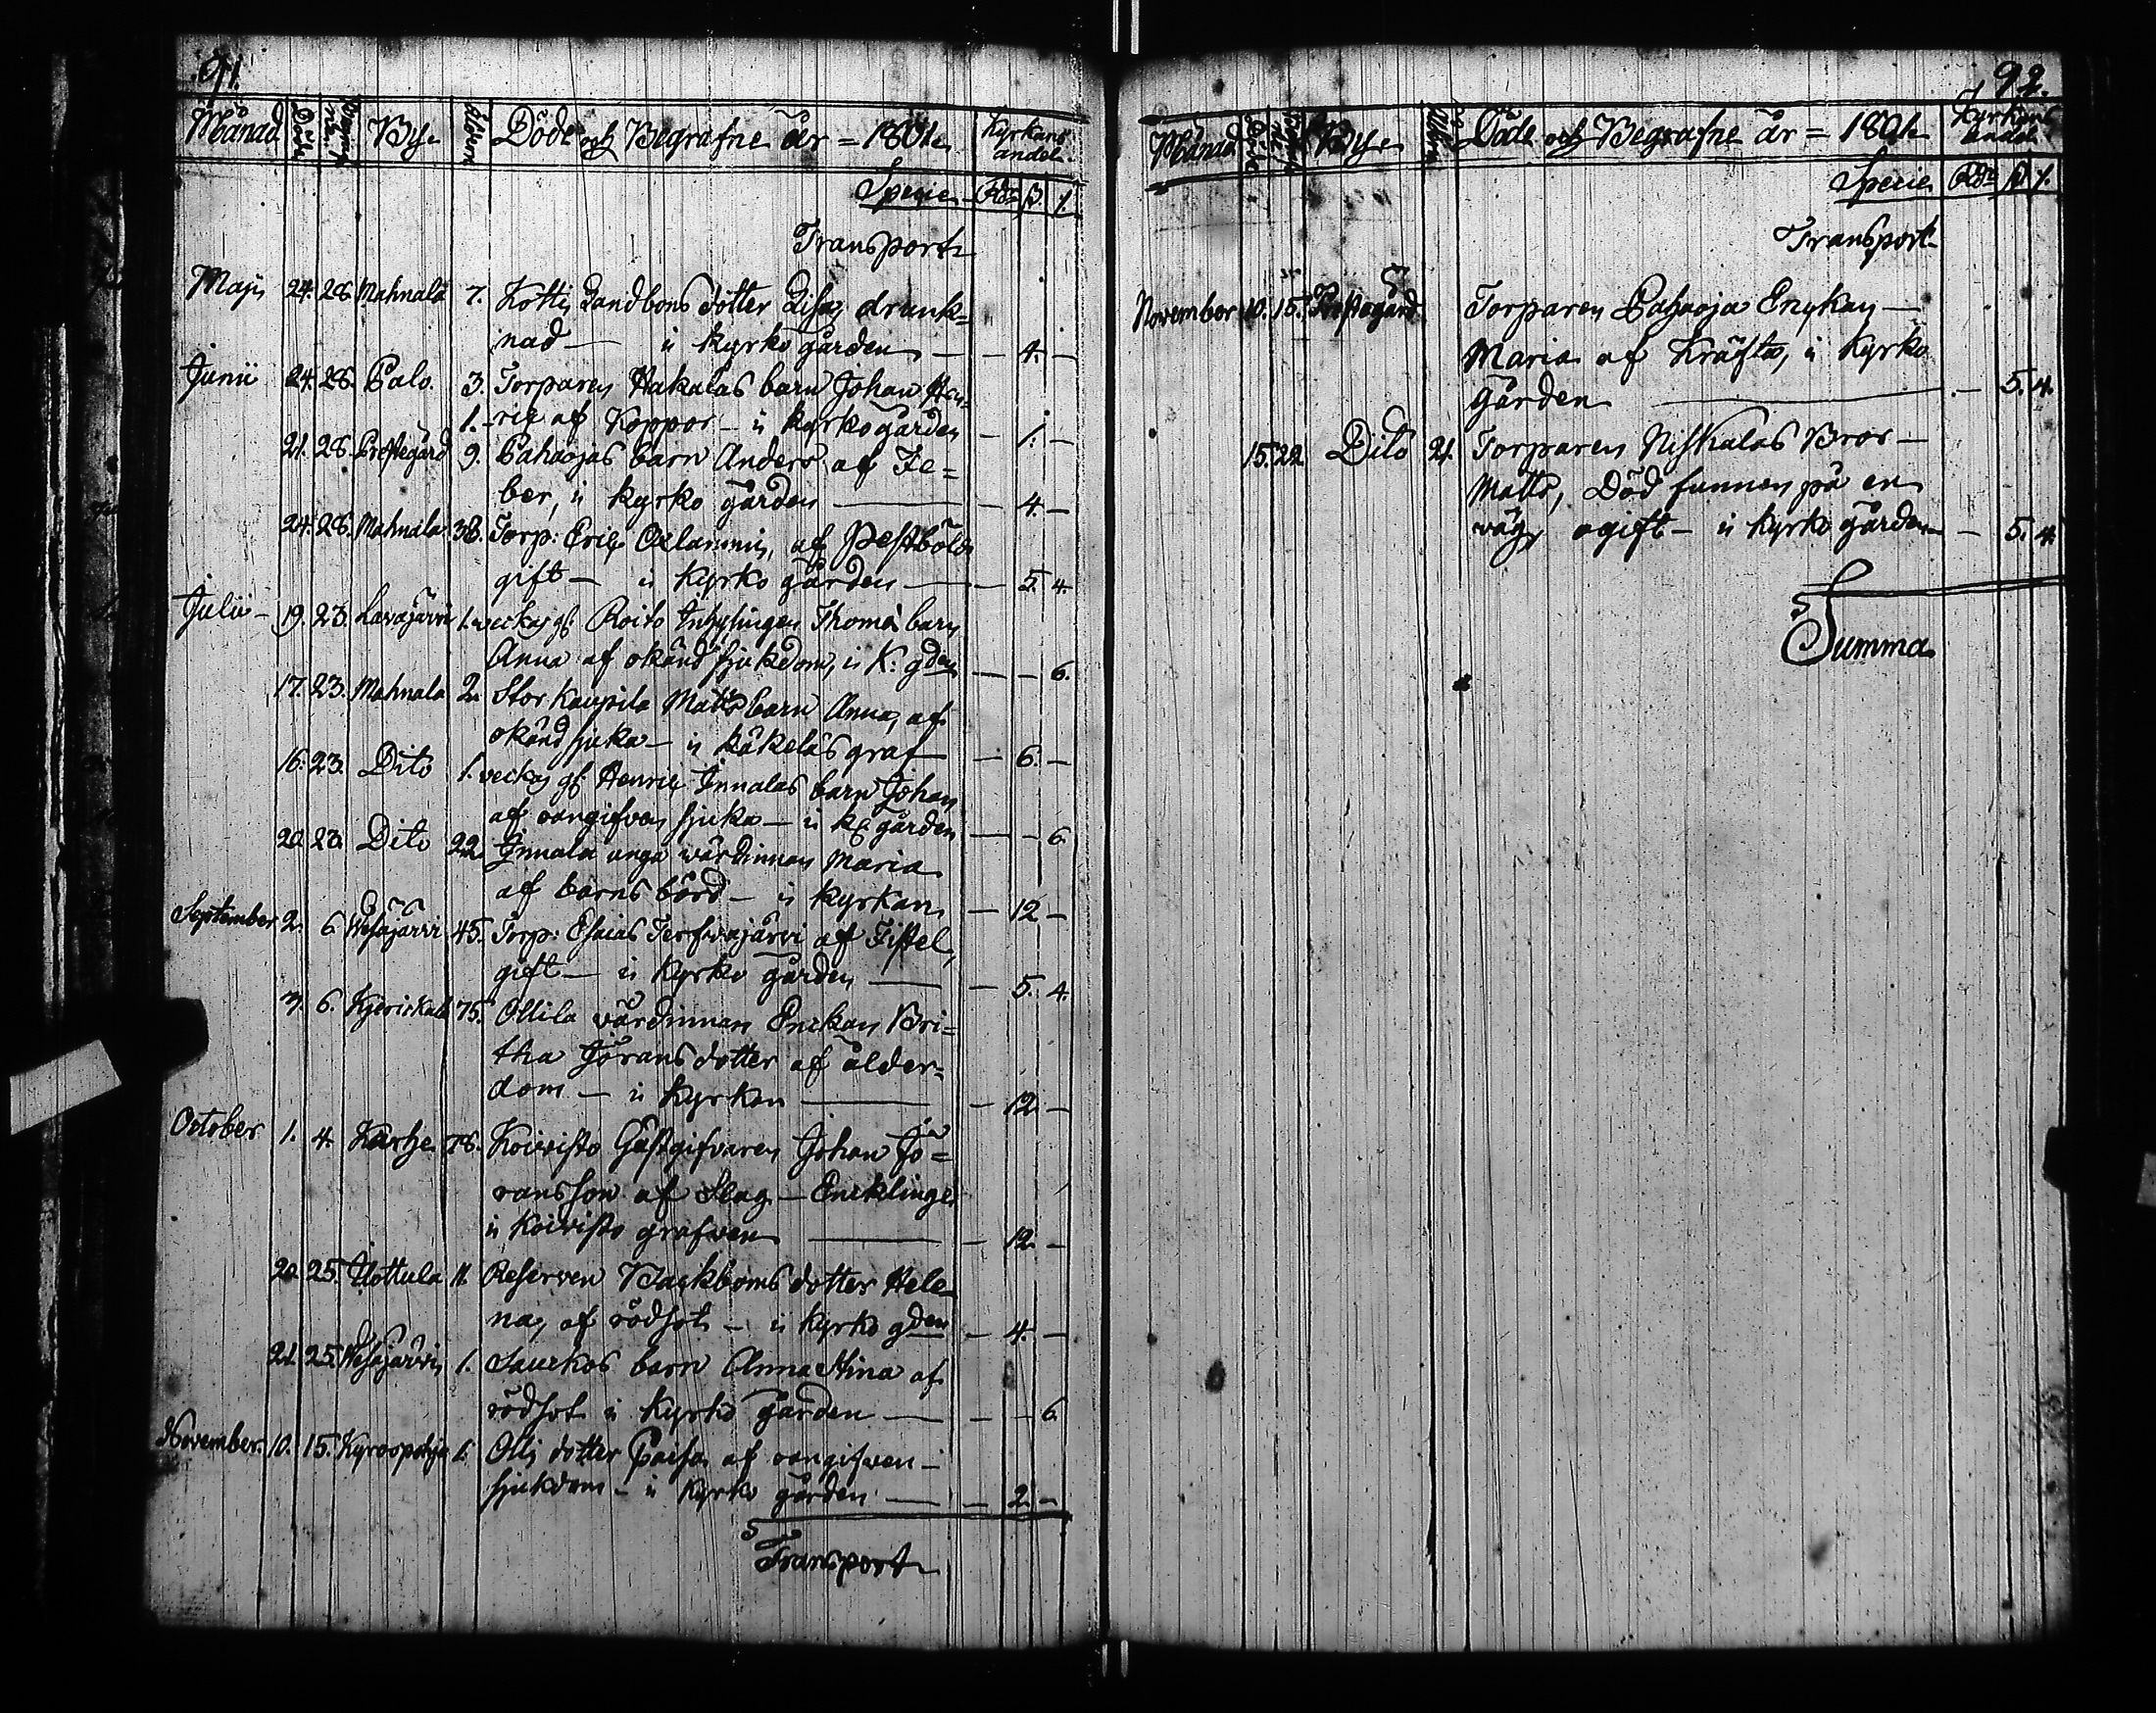 91.
Månad Döde Begrafne Bye Ålder Döde och Begrafne år = 1801. Kyrkans andel.
Specie Rdr ß. r.
Transport
Maji 24. 28. Mahnala 7. Kotti Landbons dotter Lisa, drunk=
nad — i kyrko gården — — 4. —
Junii 24. 28. Palo. 3. Torparen Hakalas barn Johan Hen=
1. ric af Koppor — i kyrkogården — 1. —
21. 28. Prestegård 9. Pahaojas barn Anders af Fe=
ber, i kyrko gården — — 4. —
24. 28. Mahnala 38. Torp: Eric Oxlammi, af Pestböld
gift — i Kyrko gården — — 5. 4.
Julii — 19. 23. Lavajärvi 1. veckas gl: Roito Inhysingen Thomæ barn
Anna af okänd sjukdom, i K: gden — — 6.
17. 23. Mahnala 2. Stor Kaupila Matts barn Anna, af
okänd sjuka — i Käkeläs graf — 6. —
16. 23. Dito 1. veckas gl: Henric Innalas barn Johan
af oangifven sjuka — i K: gården — — 6.
20. 23. Dito 22. Innala unga värdinnan Maria
af barns börd — i Kyrkan, — 12 —
September 2. 6. Wesajärvi 45. Torp: Esaias Terfwajärvi af Fistel,
gift — i Kyrko gården — — 5. 4.
3. 6. Kyeriskala 75. Ollila värdinnan Enckan Bri=
tha Jörans dotter af ålder=
dom — i Kyrkan — — 12. —
October 1. 4. Karhe 78. Koivisto Gästgifvaren Johan Jö=
ransson af Slag — Encklinge
i Koivisto grafven — — 12. —
20. 25. Uottula 11. Reserven Backboms dotter Hele
na, af rödsot — i Kyrko gden — 4. —
21. 25. Wesajärvi 1. Saurkos barn Anna Stina af
rödsot i Kyrko gården — — — 6.
November. 10. 15. Kyrospohja 6. Olli dotter Caisa af oangifven —
sjukdom — i Kyrko gården — — 2. —
Transport
92.
Månad Döde Bye Ålder Döde och Begrafne år = 1801. Kyrkans andel.
Specie Rdr ß r.
Transport
November 10. 15. Prestegård Torparen Pahaoja Enykan —
Maria af Kräfta, i Kyrko
gården — — 5. 4.
15. 22. Dito 21. Torparen Niskalas Bror —
Matts, Död funnen på en
väg, ogift — i Kyrko gården — 5. 4.
Summa